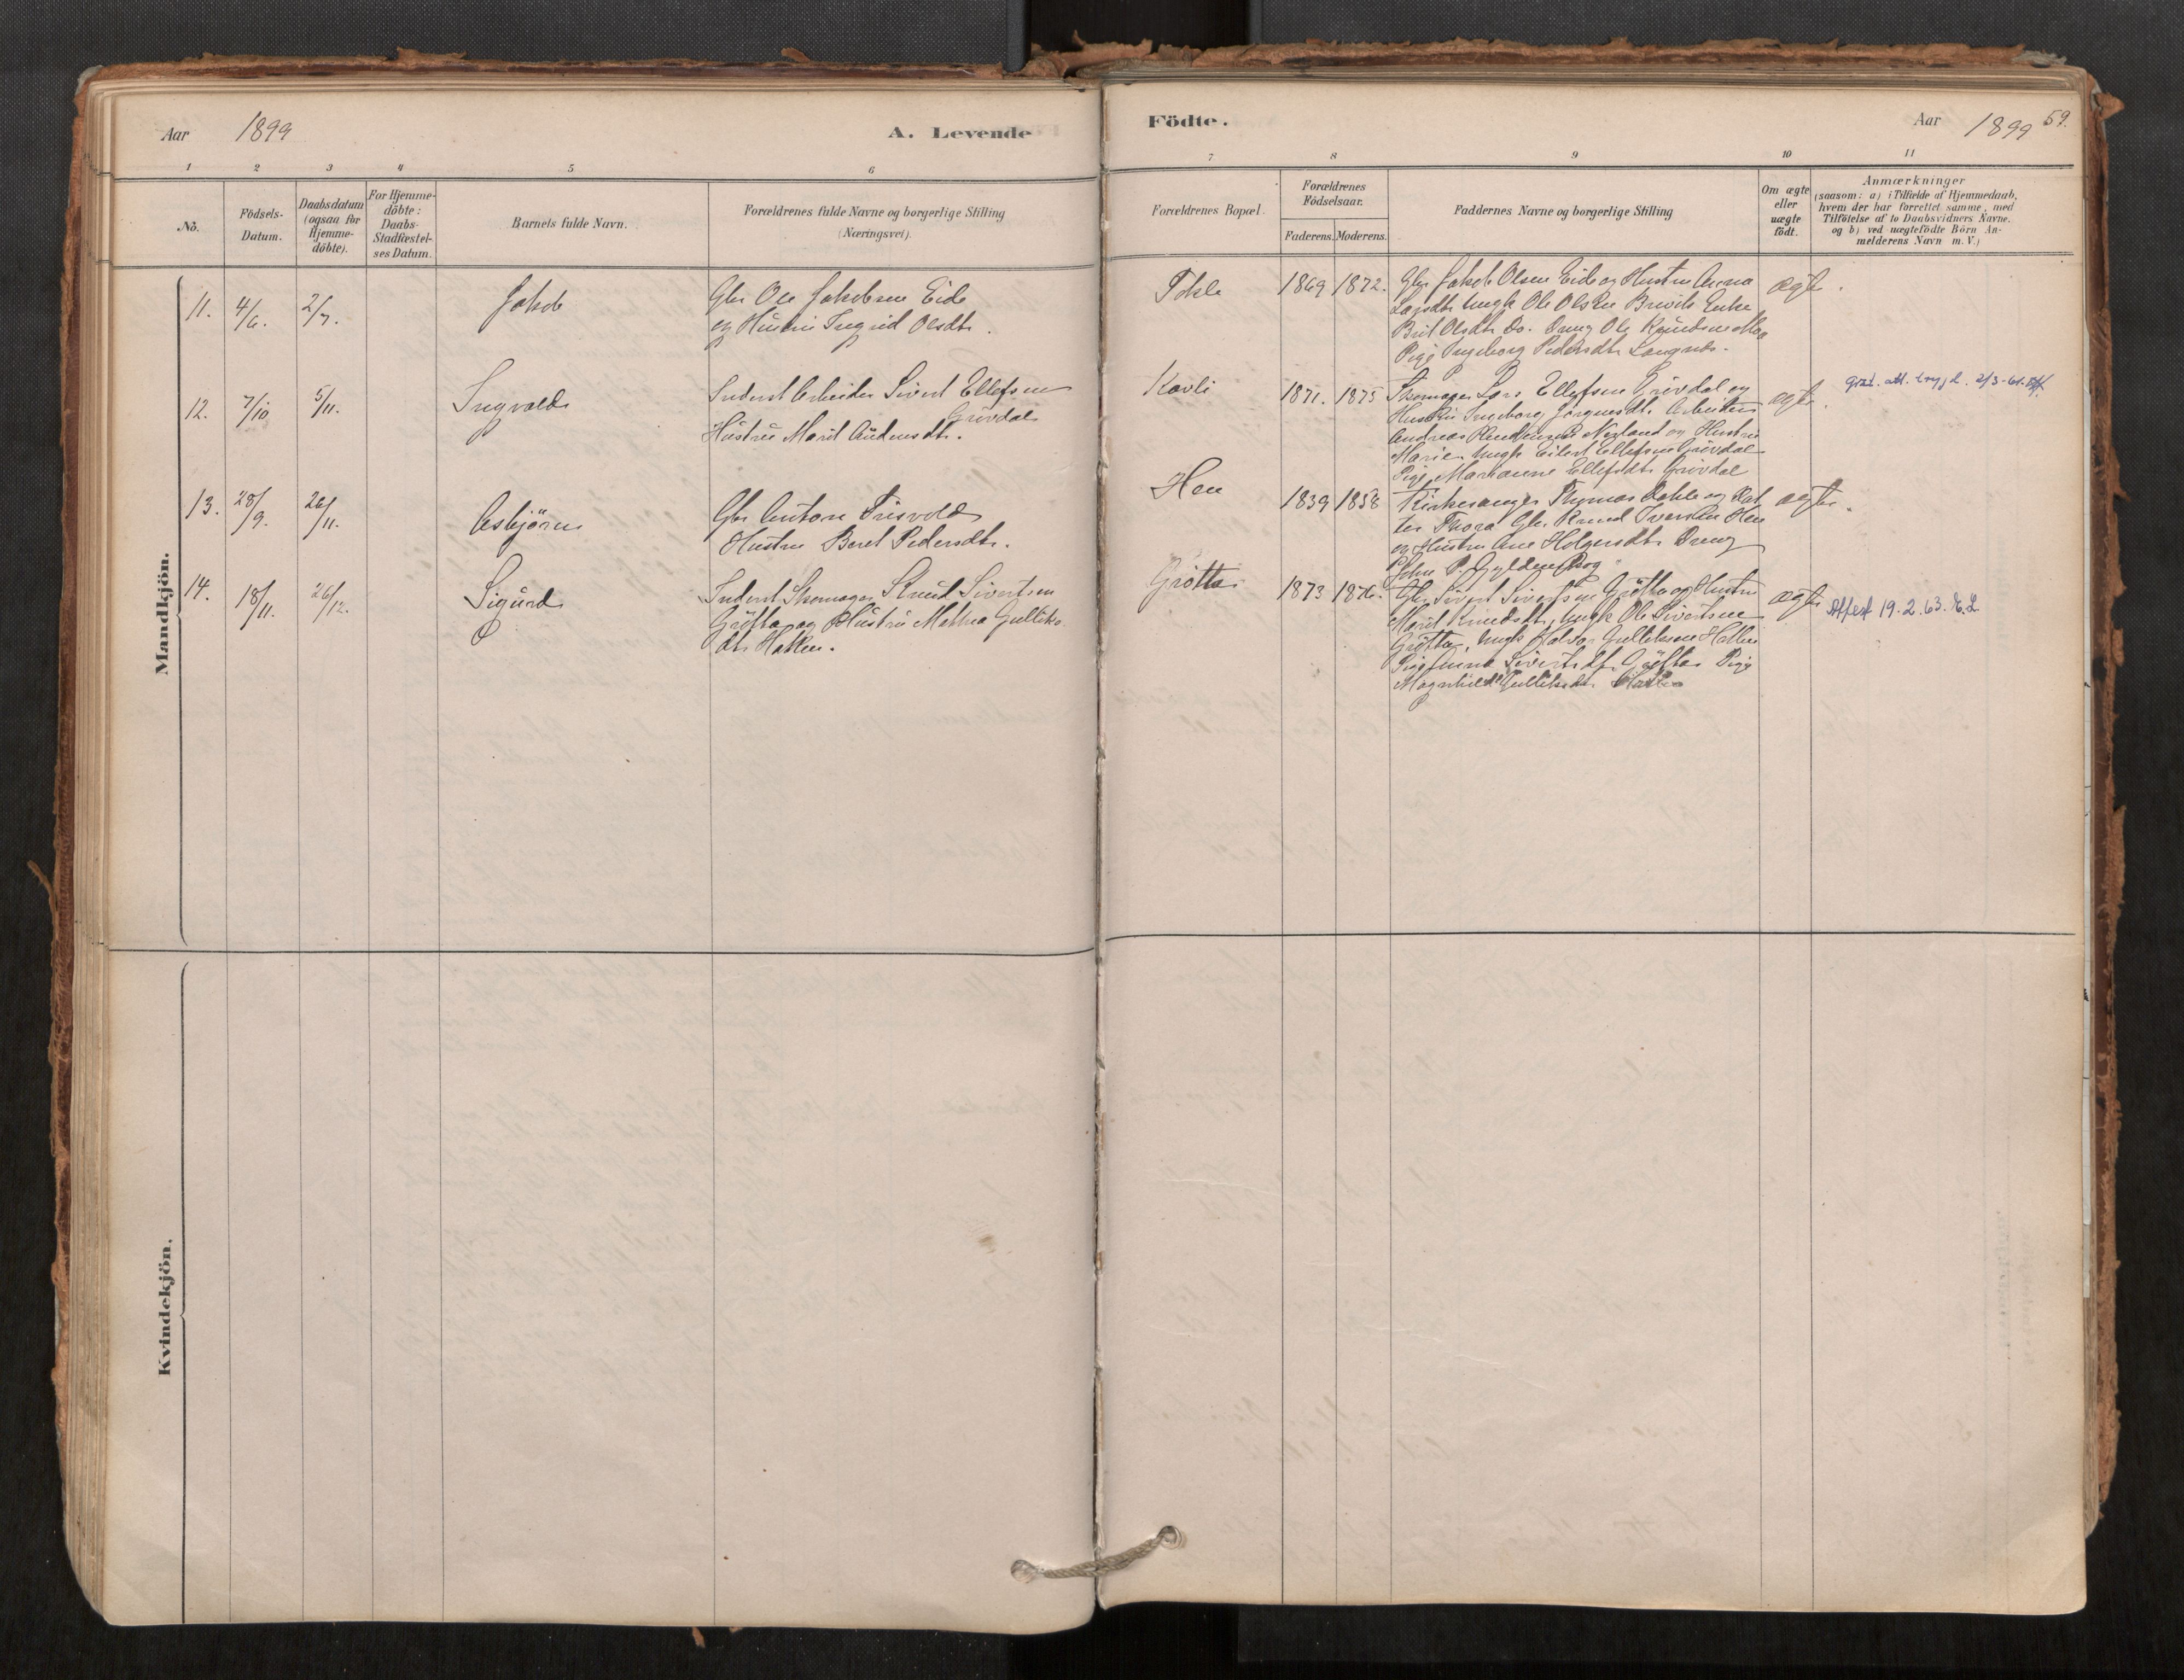 Aar 1899
A. Levende
1 2 3 4 5 6
No.
Födsels-
Datum.
Daabsdatum
(ogsaa for
Hjemme-
döbte).
For Hjemme-
döbte:
Daabs-
Stadfæstel-
ses Datum.
Barnets fulde Navn.
Forældrenes fulde Navne og borgerlige Stilling
(Næringsvei).
Mandkjön.
11. 4/6. 2/7. Jakob
Gbr Ole Jakobsen Eide
og Hustru Ingrid Olsdtr.
12. 7/10 5/11. Ingvald
Inderst Arbeider Sivert Ellefsen
Grövdal
Hustru Marit Audensdtr.
13. 28/9. 26/11. Asbjörn
Gbr Anton Trisvold
Hustru Beret Pedersdtr.
14. 18/11. 26/12. Sigurd
Inderst Skomager Knud Sivertsen
Grötta og Hustru Mathea Gulliks
dtr Hatlen.
Kvindekjön.
Födte.
Aar 1899 59.
7 8 9 10 11
Forældrenes Bopæl.
Forældrenes
Födselsaar.
Faderens. Moderens.
Faddernes Navne og borgerlige Stilling
Om ægte
eller
uægte
födt.
Anmærkninger
(saasom: a) i Tilfælde af Hjemmedaab,
hvem der har forrettet samme, med
Tilföielse af to Daabsvidners Navne.
og b) ved uægtefödte Börn An-
melderens Navn m. V.)
Tokle 1869 1872. Gbr Jakob Olsen Eide og Hustru Anna
Larsdtr Ungk Ole Olsen Brevik Enke
Brit Olsdtr Do. Dreng Ole Knudsen Moa
Pige Ingeborg Pedersdtr Langnes.
ægte.
Kavli 1871. 1875 Skomager Lars Ellefsen Grövdal og
Hustru Ingeborg Jörgensdtr Arbeider
Andreas Nesland og Hustru
Marie. Ungk Eilert Ellefsen Grövdal
Pige Marianne Ellefsdtr Grövdal
ægte.
att. trygd. 2/3-61.
Hen 1839 1858 Kirkesanger Thomas Dahle og Dat
ter Thora Gbr Knud Iversen Hen
og Hustru Ane Holgersdtr Dreng
John P. Gyldenskog
ægte.
Grötta 1873 1876. Gbr Sivert Sivertsen Grötta og Hustru
Marit Knudsdtr, Ungk Ole Sivertsen
Grötta, Ungk Halvor Gulliksen Hatlen
Pige Anna Sivertsdtr Grötta Pige
Magnhild Gulliksdtr Hatlen
ægte
Attest 19.2.63. E.L